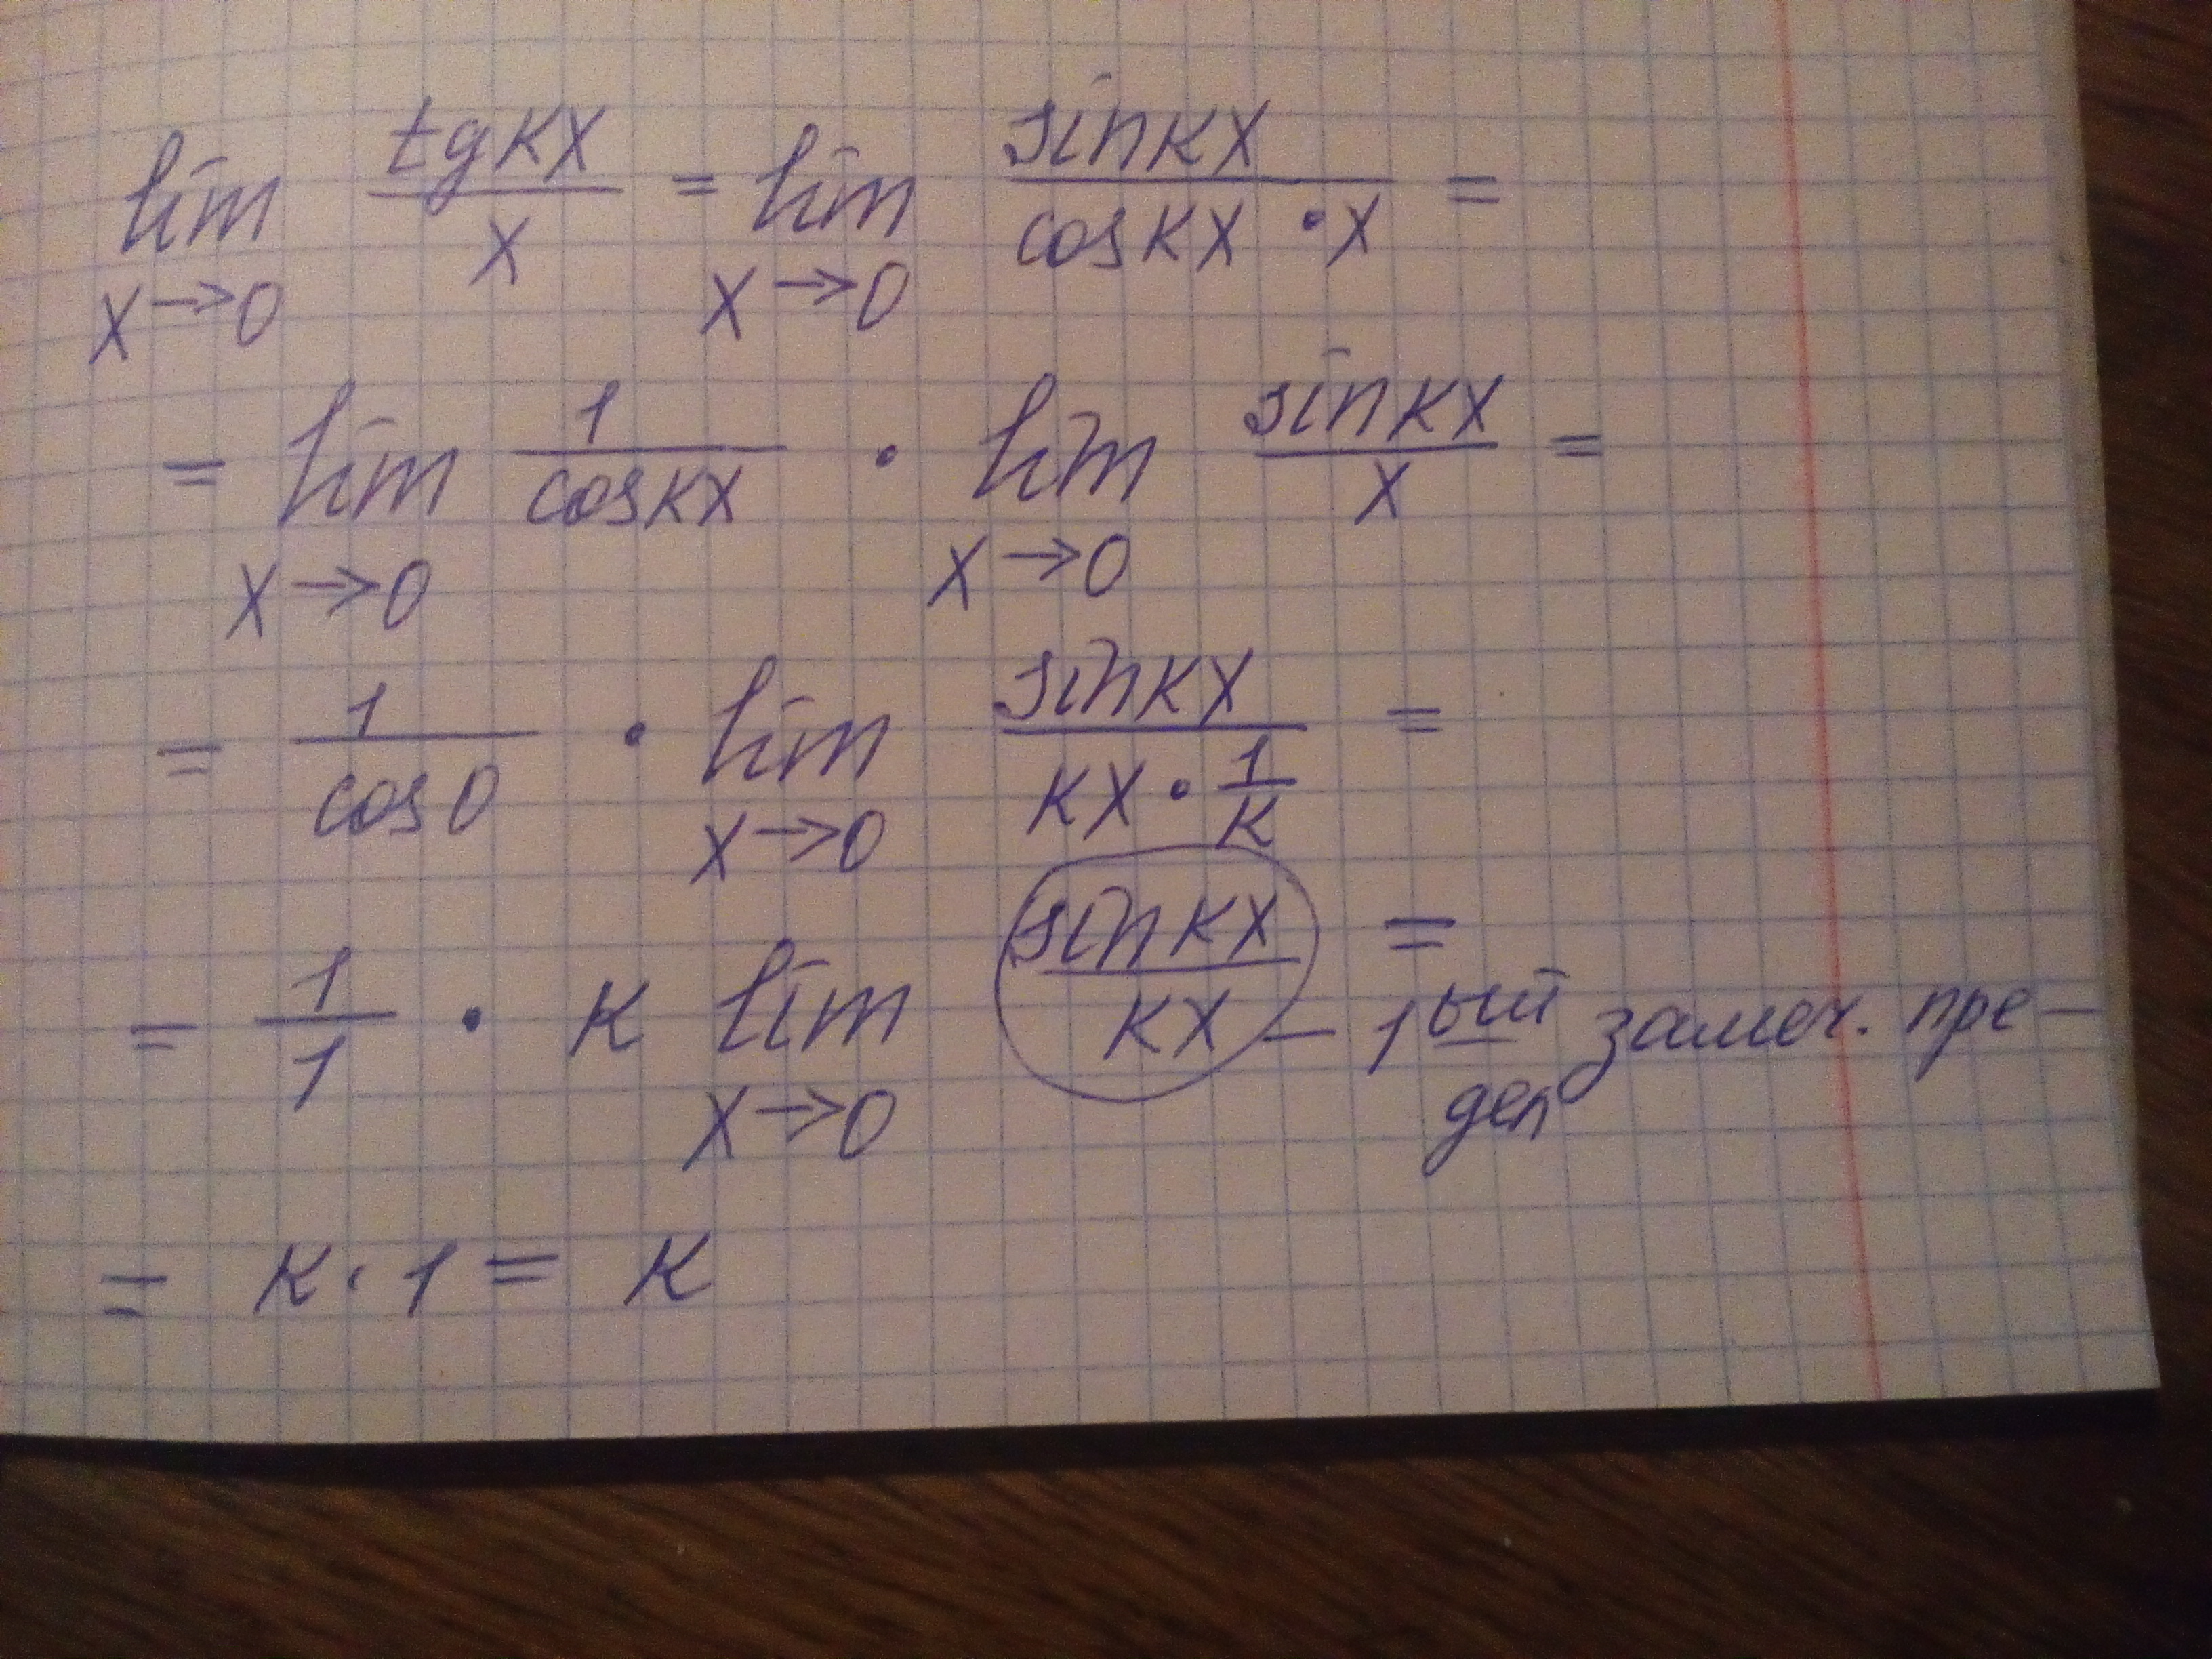 lim x→0 tgkx/x = lim x→0 sinkx/(coskx · x) =
= lim x→0 1/coskx · lim x→0 sinkx/x =
= 1/cos0 · lim x→0 sinkx/(kx · 1/k) =
= 1/1 · k lim x→0 sinkx/kx = – 1ый замеч. пре–
дел
= k · 1 = k